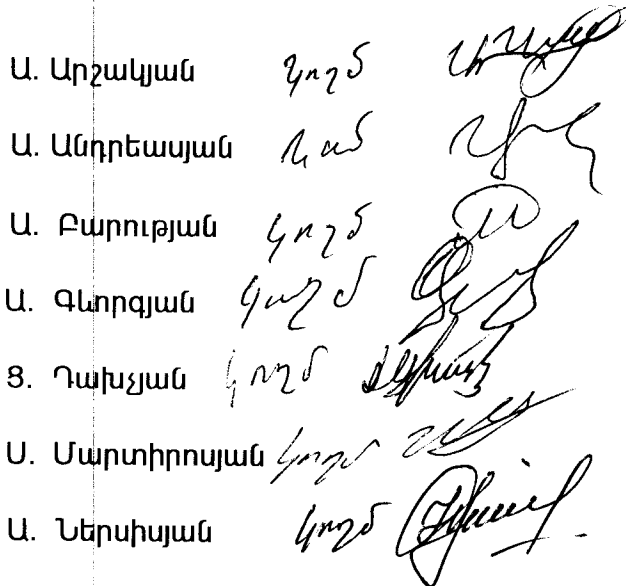 Ա. Արշակյան կողմ
Ա. Անդրեասյան
Ա. Բարության կողմ
Ա. Գևորգյան կողմ
Ց. Դախչյան կողմ
Ս. Մարտիրոսյան կողմ
Ա. Ներսիսյան կողմ